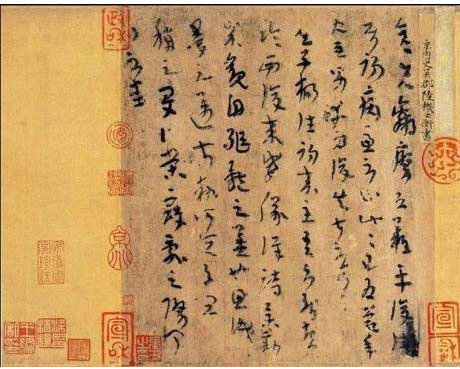 內史吳郡陸機士衡書
彥先羸瘵恐難平復往
屬初病慮不止此此已為慶承
使唯男幸為復失前憂耳
吳子楊往初來主吾不能盡
臨西復來威儀詳跱舉動成
觀自軀體之美也思識
量之邁前執所恒有宜
稱之夏伯榮寇亂之際聞
問不悉
政和
宣和
宣和